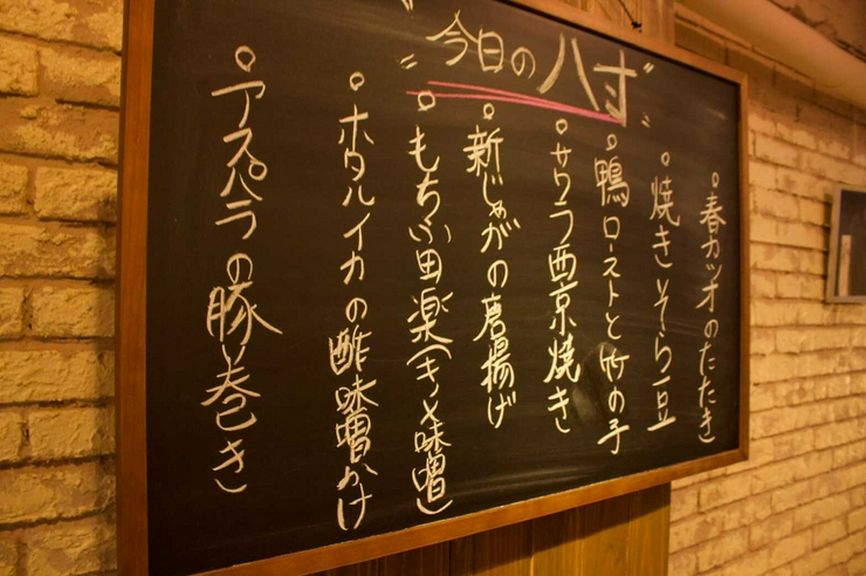 "今日の八寸"
。春カツオのたたき
。焼きそら豆
。鴨ローストと竹の子
。サワラ西京焼き
。新じゃがの唐揚げ
。もちふ田楽(きのめ味噌)
。ホタルイカの酢味噌かけ
。アスパラの豚巻き